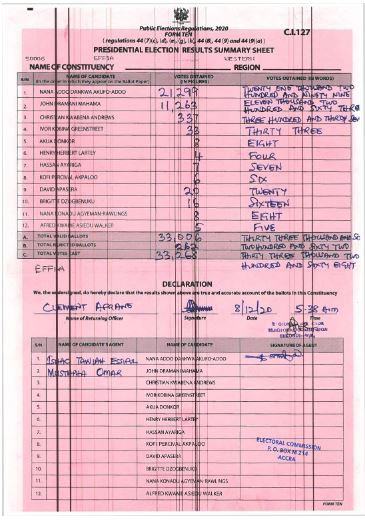 Public Elections Regulations, 2020
FORM TEN
C.I.127
PRESIDENTIAL ELECTION RESULTS SUMMARY SHEET
EFFIA WESTERN
NAME OF CONSTITUENCY REGION
S/N NAME OF CANDIDATE VOTES OBTAINED VOTES OBTAINED (IN WORDS)
(In the order in which they appeared on the Ballot Paper) (IN FIGURES)
1. NANA ADDO DANKWA AKUFO-ADDO 21,299 TWENTY ONE THOUSAND TWO HUNDRED AND NINETY NINE
2. JOHN DRAMANI MAHAMA 11,263 ELEVEN THOUSAND TWO HUNDRED AND SIXTY THREE
3. CHRISTIAN KWABENA ANDREWS 337 THREE HUNDRED AND THIRTY
4. IVOR KOBINA GREENSTREET 33 THIRTY THREE
5. AKUA DONKOR 8 EIGHT
6. HENRY HERBERT LARTEY 4 FOUR
7. HASSAN AYARIGA 7 SEVEN
8. KOFI PERCIVAL AKPALOO 6 SIX
9. DAVID APASERA 20 TWENTY
10. BRIGITTE DZOGBENUKU 16 SIXTEEN
11. NANA KONADU AGYEMAN-RAWLINGS 8 EIGHT
12. ALFRED KWAME ASIEDU WALKER 5 FIVE
A. TOTAL VALID BALLOTS 33,006 THIRTY THREE THOUSAND AND
B. TOTAL REJECTED BALLOTS 262 TWO HUNDRED AND SIXTY TWO
C. TOTAL VOTES CAST 33,268 THIRTY THREE THOUSAND TWO
EFFIA HUNDRED AND SIXTY EIGHT
DECLARATION
We, the undersigned, do hereby declare that the results shown above are true and accurate account of the ballots in this Constituency
CLEMENT 8/12/20 5:38 am
Name of Returning Officer Signature Date Time
S/N NAME OF CANDIDATE'S AGENT NAME OF CANDIDATE SIGNATURE OF AGENT
1. NANA ADDO DANKWA AKUFO-ADDO
2. MUSTAPHA OMAR JOHN DRAMANI MAHAMA
3. CHRISTIAN KWABENA ANDREWS
4. IVOR KOBINA GREENSTREET
5. AKUA DONKOR
6. HENRY HERBERT LARTEY
7. HASSAN AYARIGA
8. KOFI PERCIVAL AKPALOO
9. DAVID APASERA
10. BRIGITTE DZOGBENUKU
11. NANA KONADU AGYEMAN-RAWLINGS
12. ALFRED KWAME ASIEDU WALKER
ELECTORAL COMMISSION
P. O. BOX M 214
ACCRA
FORM TEN